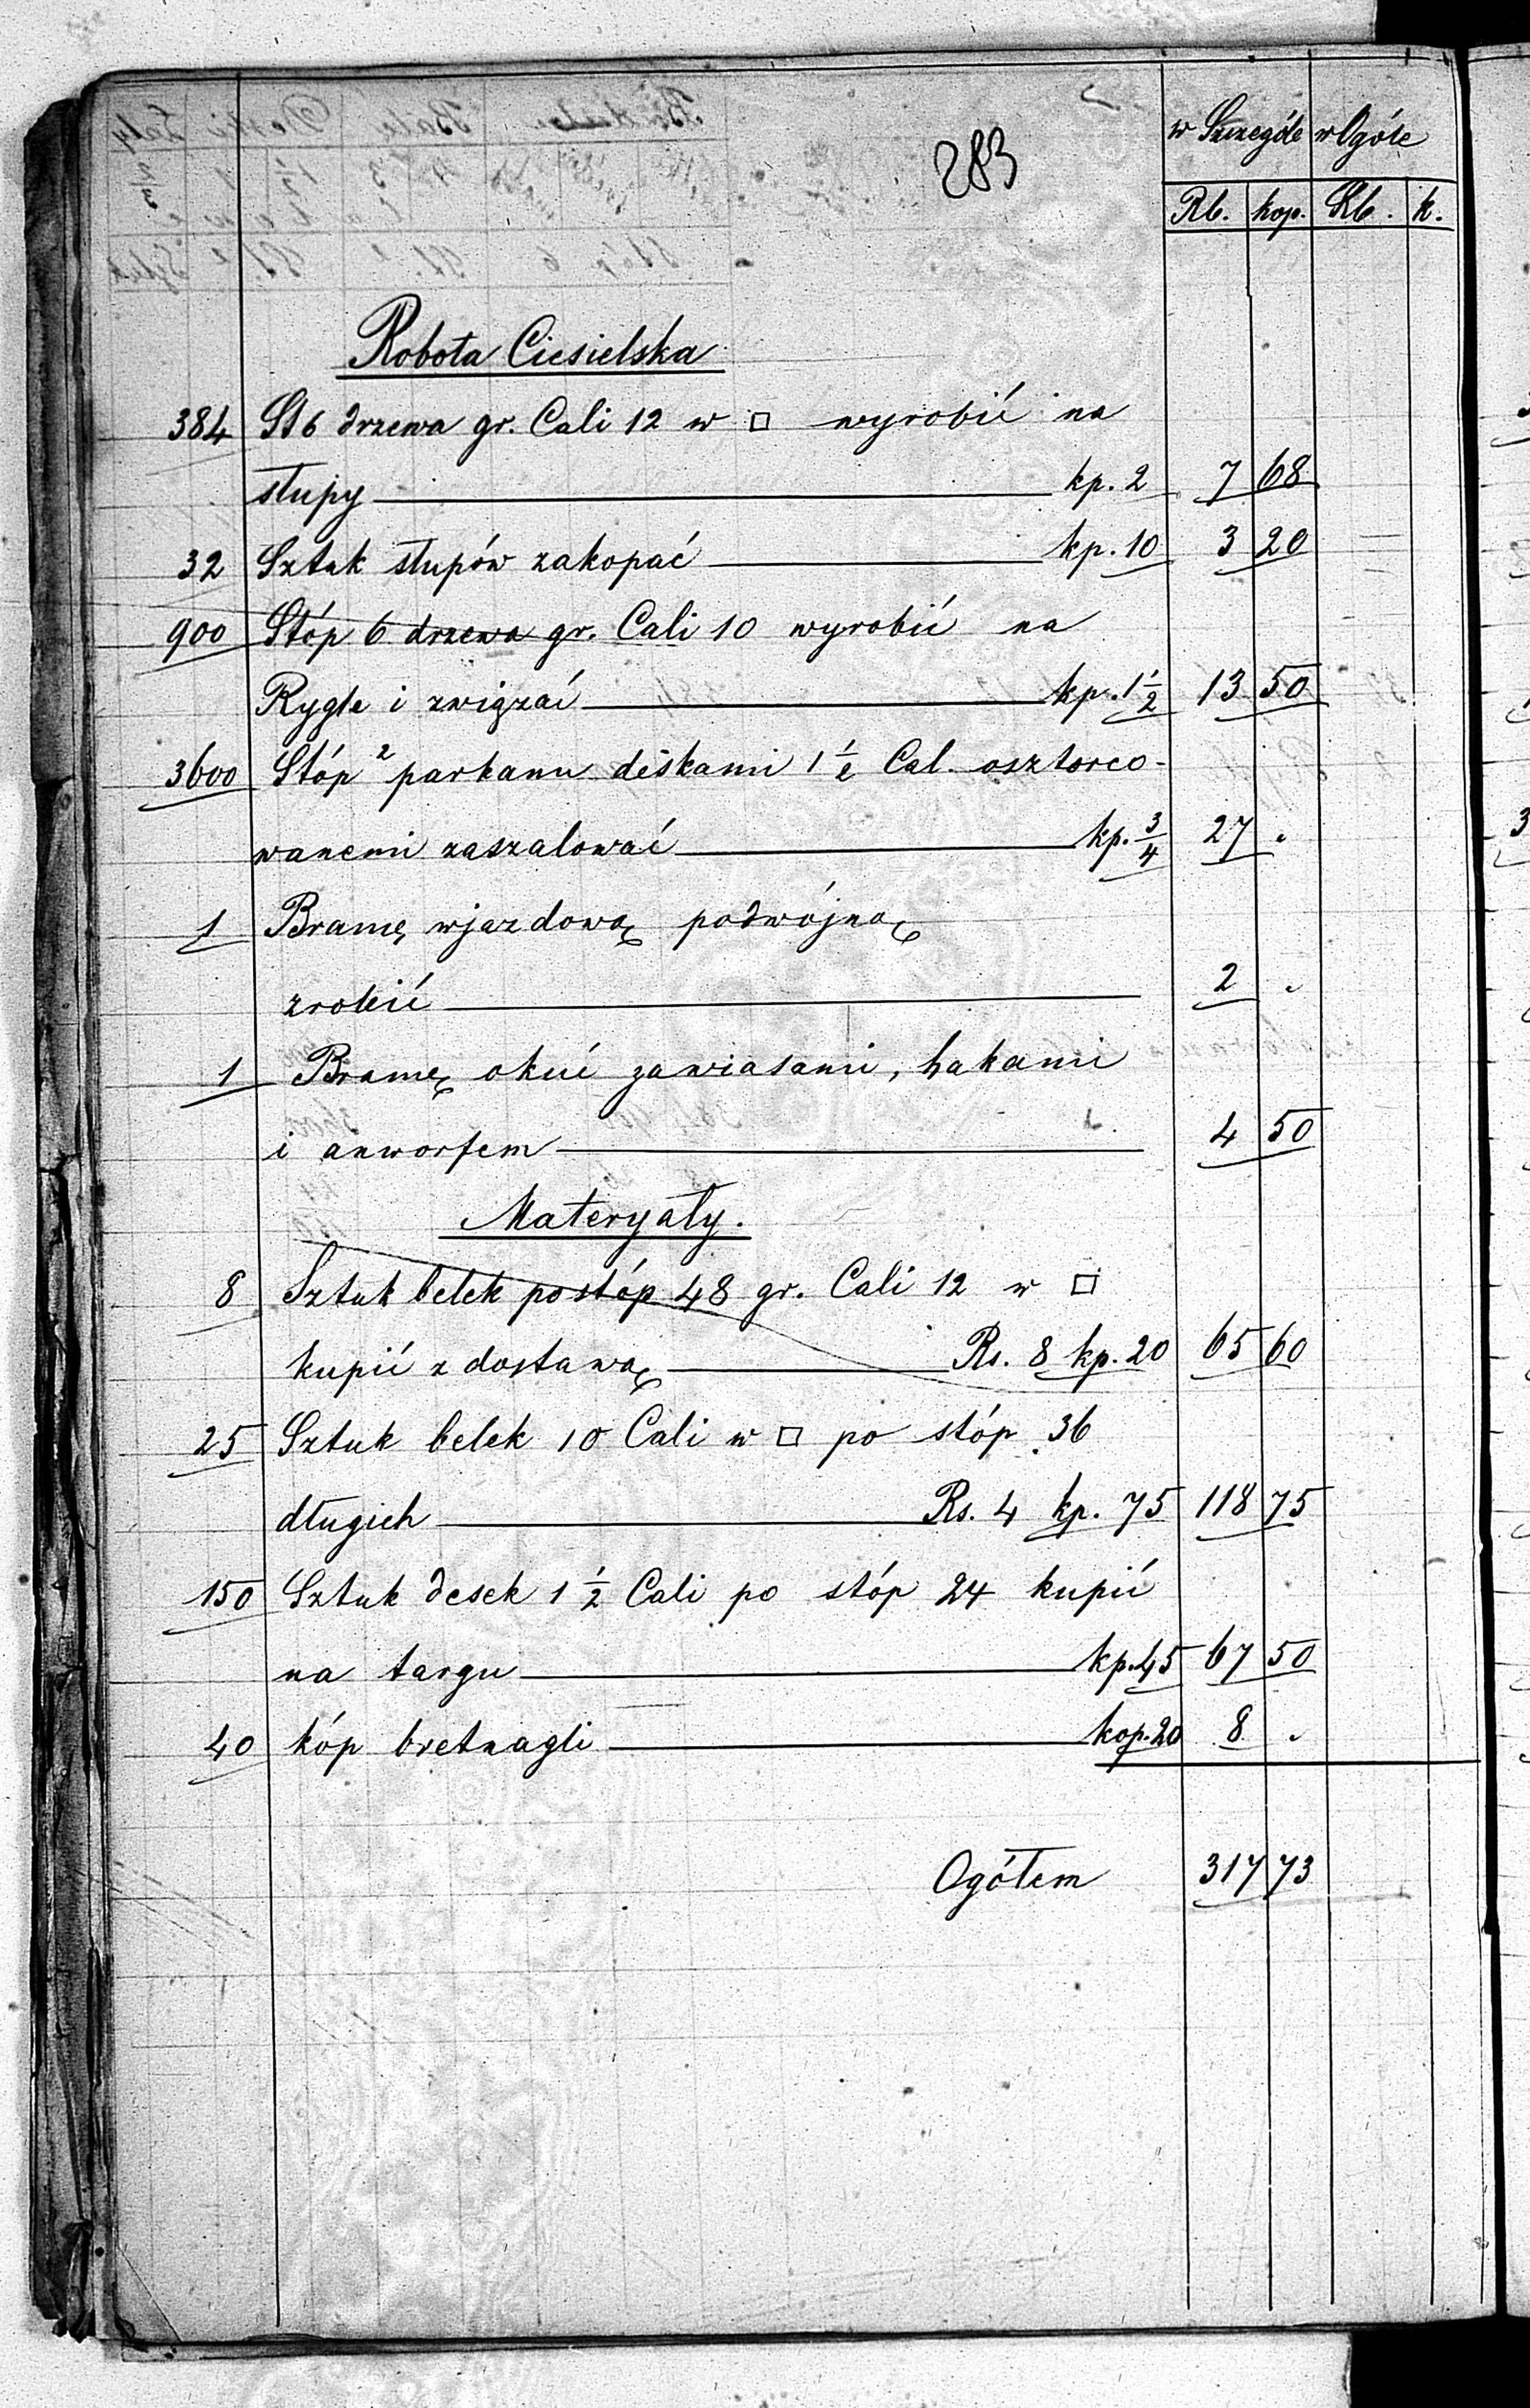 283
w Szczególe w Ogóle
Rb. kop. Rb. k.
Robota Ciesielska
384 St 6 drzewa gr. Cali 12 w □ wyrobić na
słupy kp. 2 7 68
32 Sztuk słupów zakopać kp. 10 3 20
900 Stóp 6 drzewa gr. Cali 10 wyrobić na
Rygle i związać kp. 1 1/2 13 50
3600 Stóp ² parkanu deskami 1 1/2 Cal. osztorco-
wanemi zaszalować kp. 3/4 27 "
1 Bramę wjazdową podwójną
zrobić 2 "
1 Bramę okuć zawiasami, hakami
i anworfem 4 50
Materyały.
8 Sztuk belek po stóp 48 gr. Cali 12 w □
kupić z dostawą Rs. 8 kp. 20 65 60
25 Sztuk belek 10 Cali w □ po stóp 36
długich Rs. 4 kp. 75 118 75
150 Sztuk desek 1 1/2 Cali po stóp 24 kupić
na targu kp. 45 67 50
40 kóp bretnagli kop. 20 8 "
Ogółem 317 73